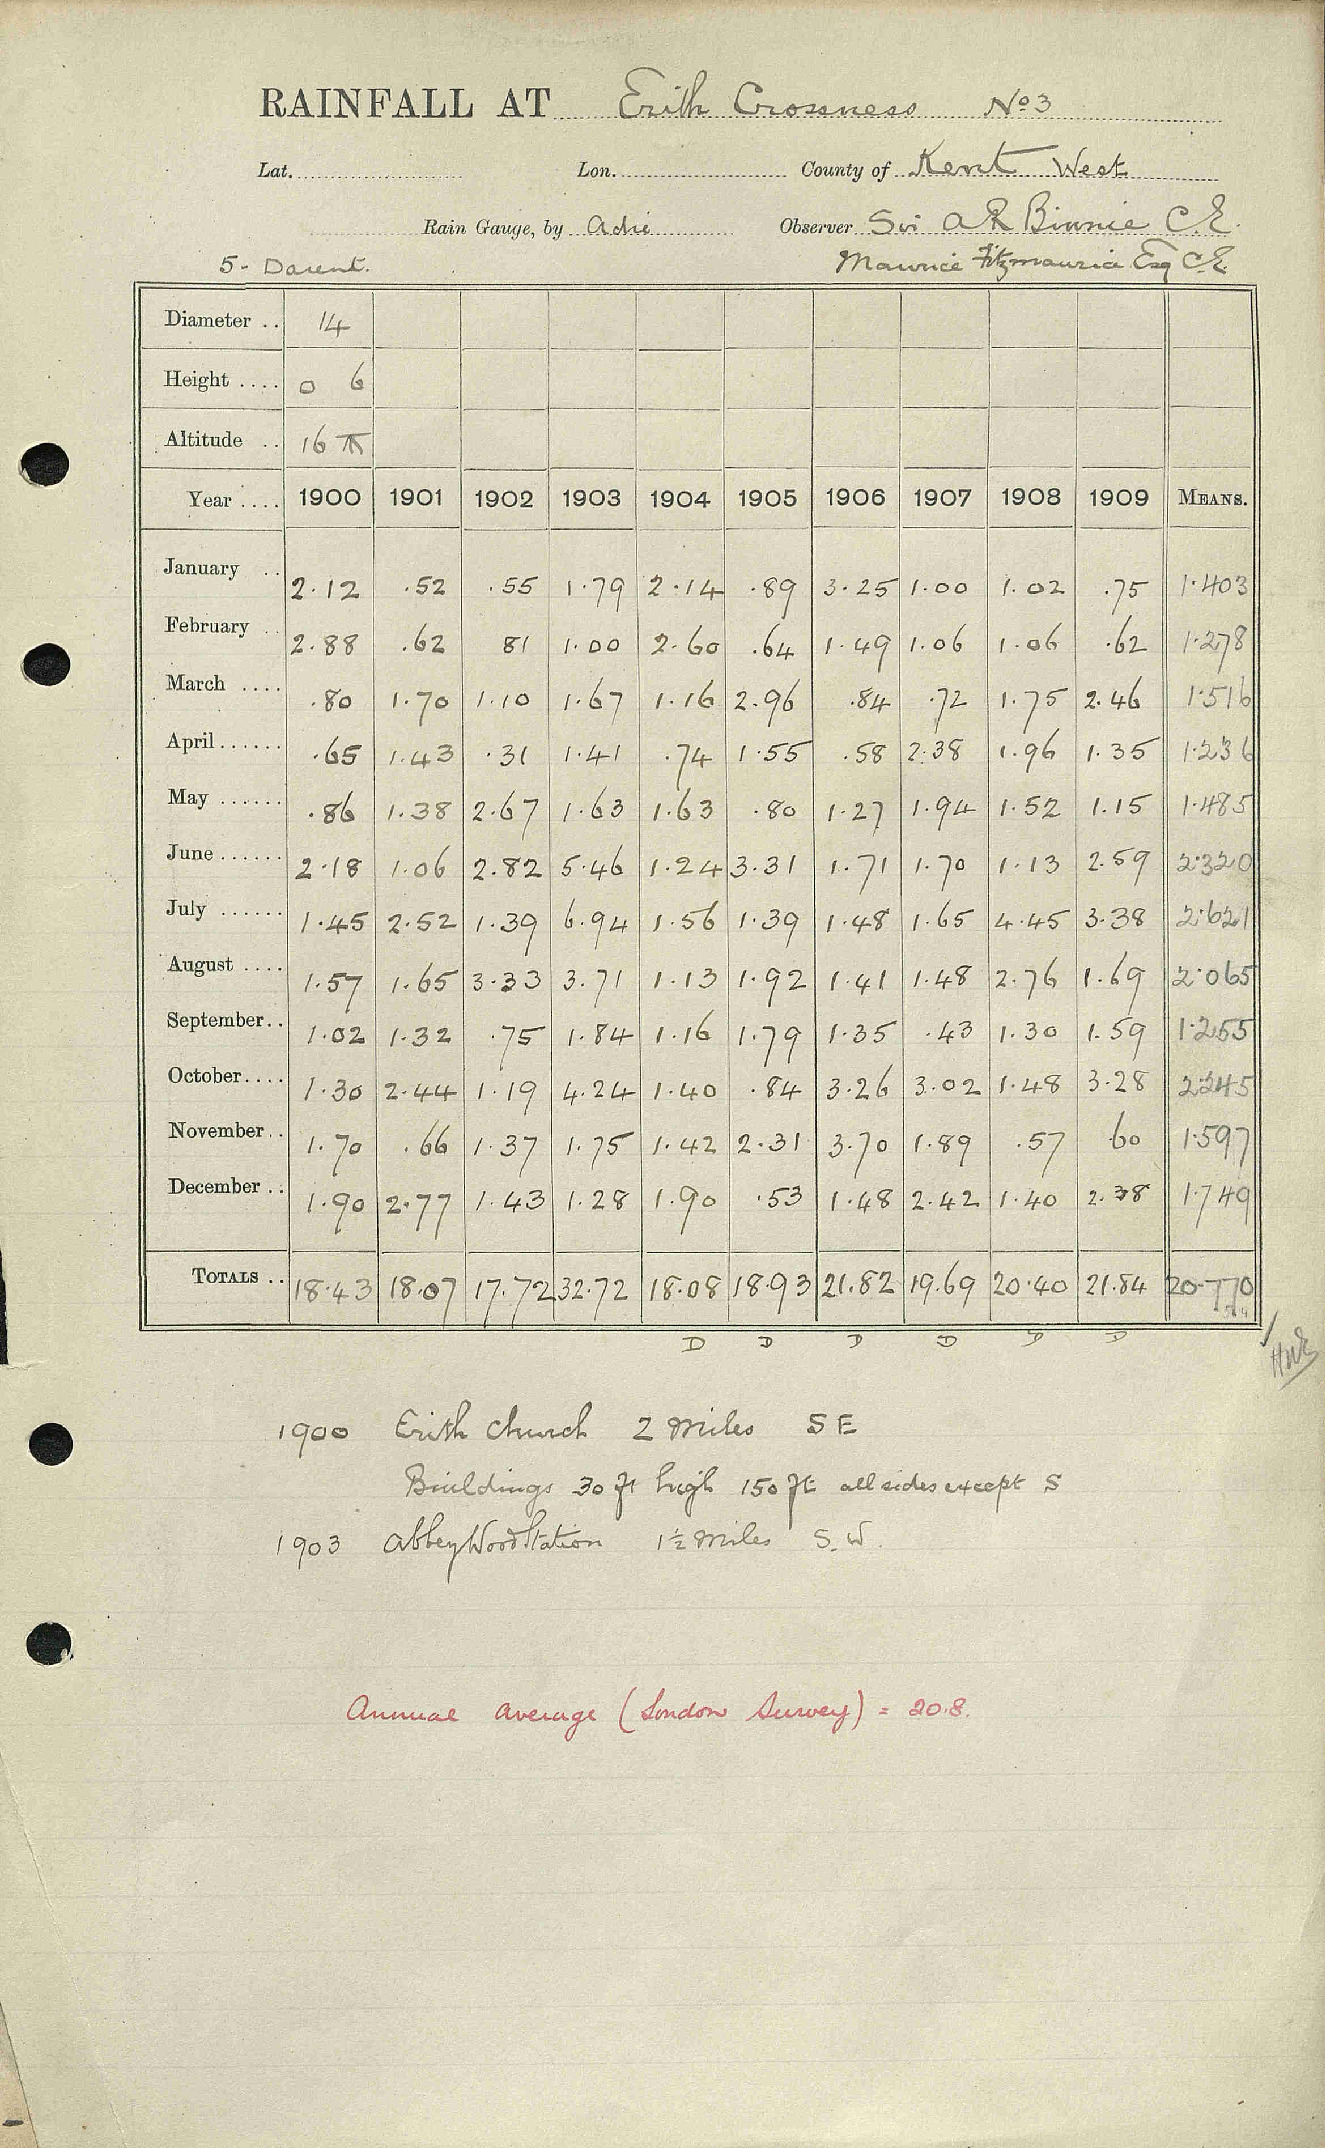 RAINFALL AT Erith Crossness No 3
Lat. Lon. County of Kent West
Rain Gauge, by Adie Observer Sir A R Binnie C.E.
5- Darent. Maurice Fitzmaurice Esq C.E.
Diameter .. 14
Height .... 0 6
Altitude .. 16
Year .... 1900 1901 1902 1903 1904 1905 1906 1907 1908 1909 MEANS.
January .. 2.12 .52 .55 1.79 2.14 .89 3.25 1.00 1.02 .75 1.403
February .. 2.88 .62 81 1.00 2.60 .64 1.49 1.06 1.06 .62 1.278
March .... .80 1.70 1.10 1.67 1.16 2.96 .84 .72 1.75 2.46 1.516
April ...... .65 1.43 .31 1.41 .74 1.55 .58 2.38 1.96 1.35 1.236
May ...... .86 1.38 2.67 1.63 1.63 .80 1.27 1.94 1.52 1.15 1.485
June ...... 2.18 1.06 2.82 5.46 1.24 3.31 1.71 1.70 1.13 2.59 2.320
July ...... 1.45 2.52 1.39 6.94 1.56 1.39 1.48 1.65 4.45 3.38 2.621
August .... 1.57 1.65 3.33 3.71 1.13 1.92 1.41 1.48 2.76 1.69 2.065
September.. 1.02 1.32 .75 1.84 1.16 1.79 1.35 .43 1.30 1.59 1.255
October.... 1.30 2.44 1.19 4.24 1.40 .84 3.26 3.02 1.48 3.28 2.245
November.. 1.70 .66 1.37 1.75 1.42 2.31 3.70 1.89 .57 60 1.597
December .. 1.90 2.77 1.43 1.28 1.90 .53 1.48 2.42 1.40 2.38 1.749
TOTALS .. 18.43 18.07 17.72 32.72 18.08 18.93 21.82 19.69 20.40 21.84 20.770
D D D D D D
1900 Erith Church 2 Miles S E
Buildings 30 ft high 150 ft all sides except S
1903 Abbey Wood Station 1½ Miles S.W.
Annual average (London Survey) = 20.8.